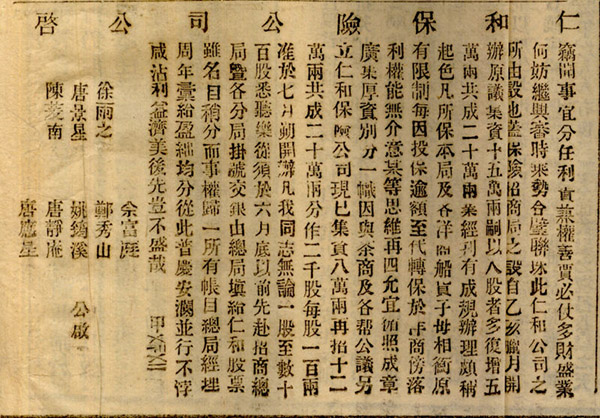 仁和保險公司公啓
竊聞事宜分任利貴兼權善賈必仗多財盛業
何妨繼興善時乘勢合璧聯珠此仁和公司之
所由設也葢保險招商局之設自乙亥臘月開
辦原議集資十五萬兩嗣以入股者多復增五
萬兩共成二十萬兩業經刋有成規辦理頗稱
起色凡所保本局及各洋商船貨子母相衡原
有限制每因投保逾額至代轉保於洋商傍落
利權能無介意某等思維再四允宜循照成章
廣集厚資別分一幟因與茶商及各帮公議另
立仁和保險公司現已集貲八萬兩再招十二
萬兩共成二十萬兩分作二千股每股一百兩
准於七月朔開辦凡我同志無論一股至數十
百股悉聽樂從須於六月底以前先赴招商總
局暨各分局掛號交銀由總局填給仁和股票
雖名目稍分而事權歸一所有帳目總局經理
周年彙給盈絀均分從此普慶安瀾並行不悖
咸沾利益濟美後先豈不盛哉
余富庭
徐雨之 鄭秀山
唐景星 姚溪 公啟
陳菱南 唐靜庵
唐應星